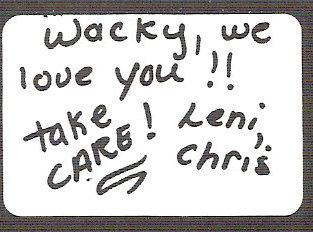 Wacky, we
love you !!
take
CARE! Leni,
Chris